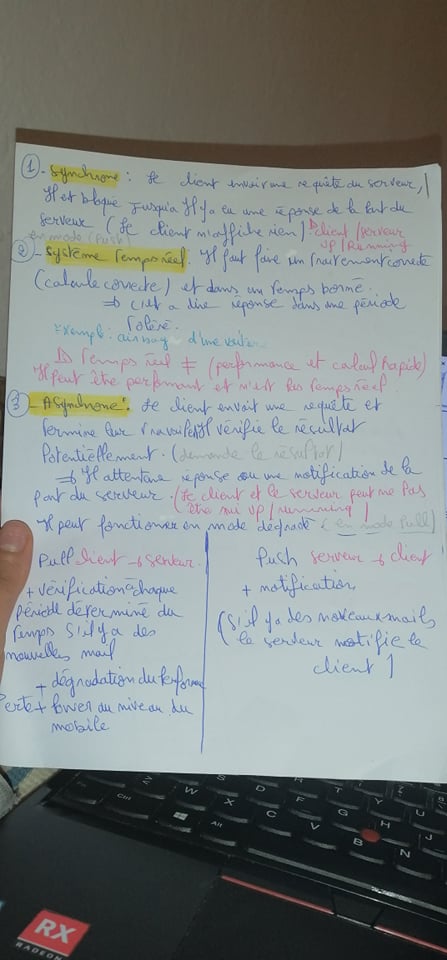 1 - Synchrone : Le client envoir une requête du serveur,
Il est bloqué jusqu'à Il y a eu une réponse de la part du
serveur (Le client n'affiche rien) client/serveur
en mode (Push) up/running
2 - Système temps réel : Il faut faire un traitement correcte
(calcule correcte) et dans un temps borné.
⇒ c'est a dire réponse dans une période
toléré.
Exemple: airbag d'une voiture
Temps réel ≠ (performance et calcul Rapide)
Il peut être performant et n'est pas temps réel
3 - Asynchrone : Le client envoit une requête et
termine leur travaile, Il vérifie le résultat
Potentiellement. (demande le résultat)
⇒ Il attend une réponse ou une notification de la
part du serveur. (Le client et le serveur peut ne pas
être up/running)
Il peut fonctionner en mode dégradé (en mode Pull)
Pull client → serveur.
+ vérification à chaque
période déterminé du
temps s'il y a des
nouvelles mail
+ dégradation du
Perte + Power au niveau du
mobile
Push serveur → client
+ notification
(s'il y a des nouveaux mails
le serveur notifie le
client)
RX
RADEON
Ctrl
Alt
Z
X
C
V
B
N